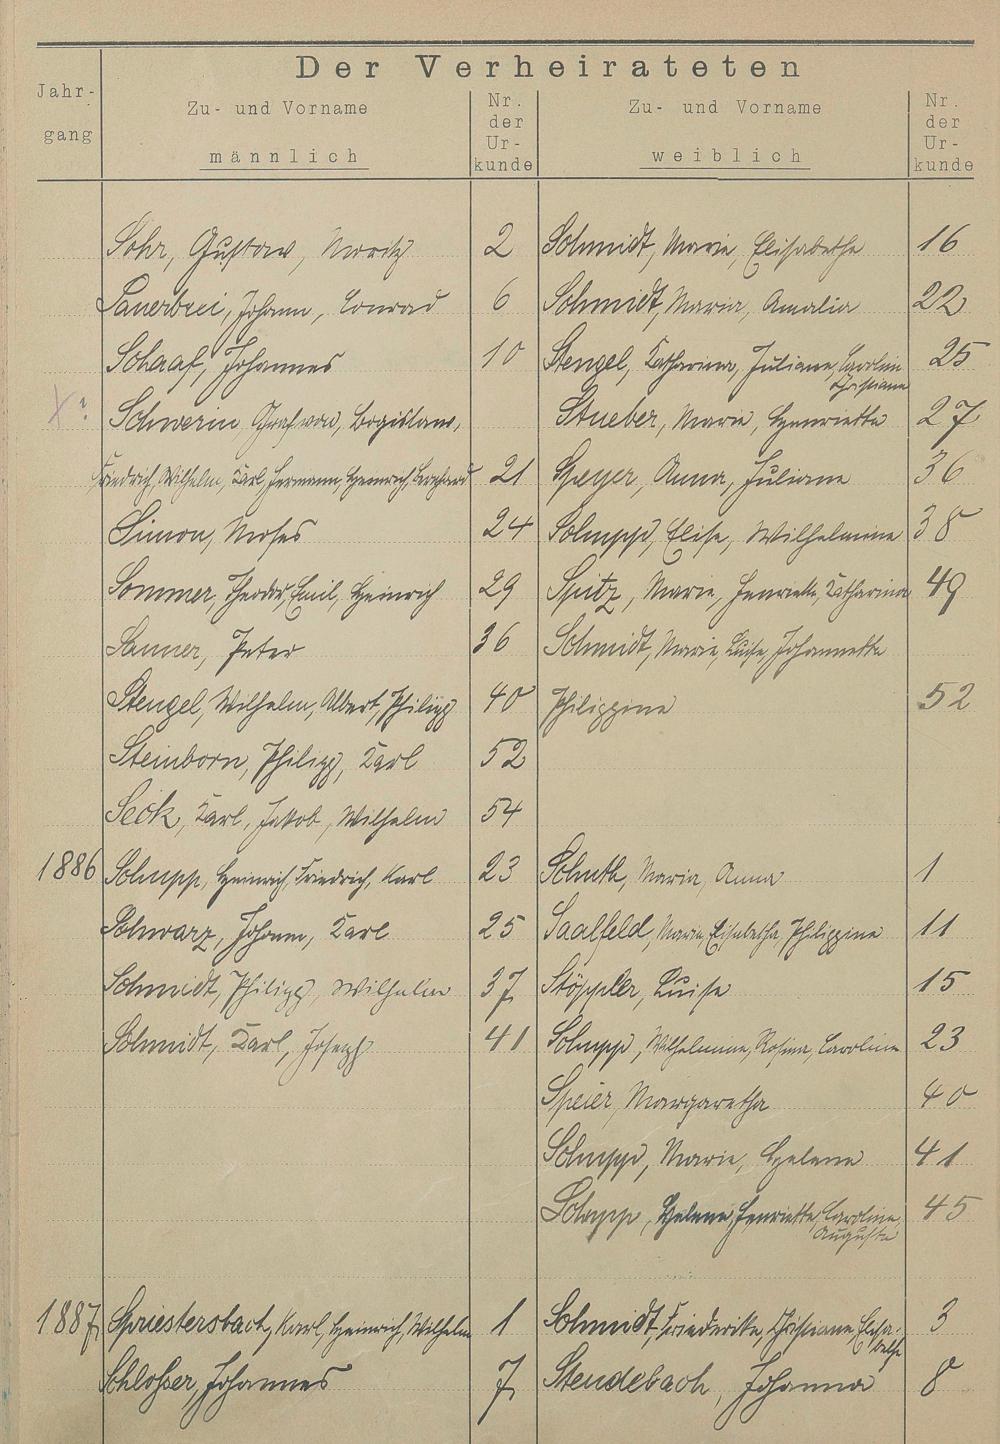 Der Verheirateten
Jahrgang
Zu- und Vorname
männlich
Nr. der Urkunde
Zu- und Vorname
weiblich
Nr. der Urkunde
Sohr, Gustav, Moritz 2 Schmidt, Marie, Elisabethe 16
Sauerbrei, Johann, Conrad 6 Schmidt, Maria, Amalia 22
Schaaf, Johannes 10 Stengel, Katharina, Juliane, Carolin 25
Christiane
X? Schwerin Graf von, Bogislaw, Stueber, Marie, Henriette 27
Friedrich, Wilhelm, Karl, Hermann, Heinrich, Bernhard 21 Speyer, Anna, Juliane 36
Simon, Moses 24 Schupp, Elise, Wilhelmine 38
Sommer, Theodor, Emil, Heinrich 29 Spitz, Marie, Henriette, Katharina 49
Sanner, Peter 36 Schmidt, Marie, Luise, Johannette
Stengel, Wilhelm, Albert, Philipp 40 Philippine 52
Steinborn, Philipp, Karl 52
Seck, Karl, Jakob, Wilhelm 54
1886 Schupp, Heinrich, Friedrich, Karl 23 Schuth, Maria, Anna 1
Schwarz, Johann, Karl 25 Saalfeld, Marie, Elisabetha, Philippine 11
Schmidt, Philipp, Wilhelm 37 Stöppler, Luise 15
Schmidt, Karl, Joseph 41 Schupp, Wilhelmine, Rosina, Caroline 23
Speier, Margaretha 40
Schupp, Marie, Helene 41
Schupp, Helene, Henriette, Caroline, 45
Auguste
1887 Spriestersbach, Karl, Heinrich, Wilhelm 1 Schmidt, Friederike, Christiane, Elisa- 3
bethe
Schlosser, Johannes 7 Stendebach, Johanna 8